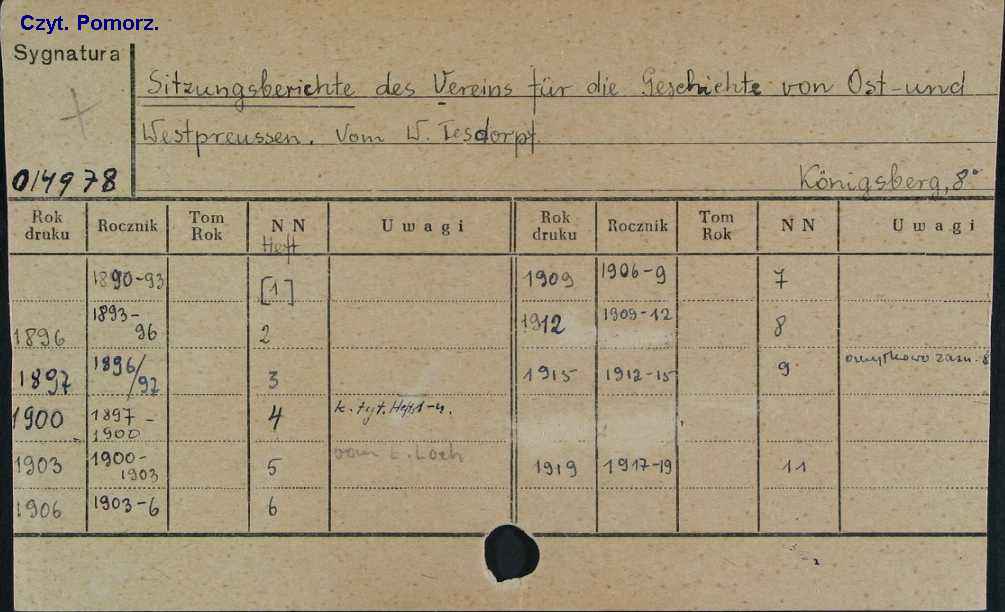 Czyt. Pomorz.
Sygnatura
Sitzungsberichte des Vereins für die Geschichte von Ost-und
Westpreussen. Vom W. Tesdorpf.
014978
Königsberg, 8°
Rok druku Rocznik Tom Rok NN Uwagi Rok druku Rocznik Tom Rok NN Uwagi
Heft
1890-93 [1] 1909 1906-9 7
1896 1893-96 2 1912 1909-12 8
1897 1896/97 3 1915 1912-15 9 omyłkowo zazn. 8
1900 1897-1900 4 k. tyt. Heft 1-4.
1903 1900-1903 5 vom E. Loch 1919 1917-19 11
1906 1903-6 6